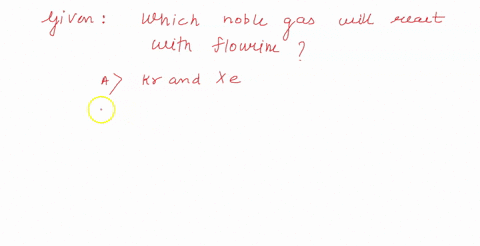 Given: Which noble gas will react
with flowrine ?
A> Kr and Xe